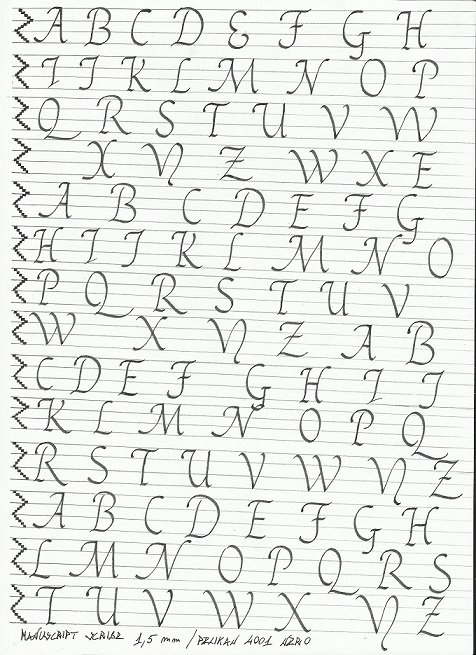 A B C D E F G H
I J K L M N O P
Q R S T U V W
X Y Z W X E
A B C D E F G
H I J K L M N O
P Q R S T U V
W X Y Z A B
C D E F G H I J
K L M N O P Q
R S T U V W Y Z
A B C D E F G H
L M N O P Q R S
T U V W X Y Z
MANUSCRIPT 1,5 mm / PELIKAN 4001 NERO